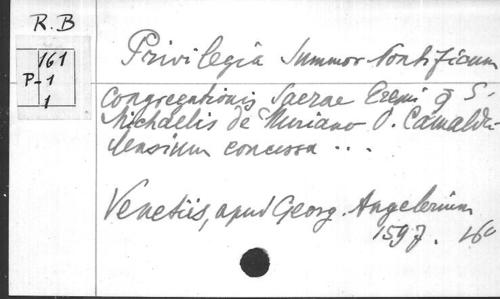 R.B
161
P-1
1
Privilegia Summor Pontificum
Congregationis Sacrae Eremi & S.
Michaelis de Muriano O. Camaldu-
lensium concessa ...
Venetiis, apud Georg. Angelerium
1597. 16°